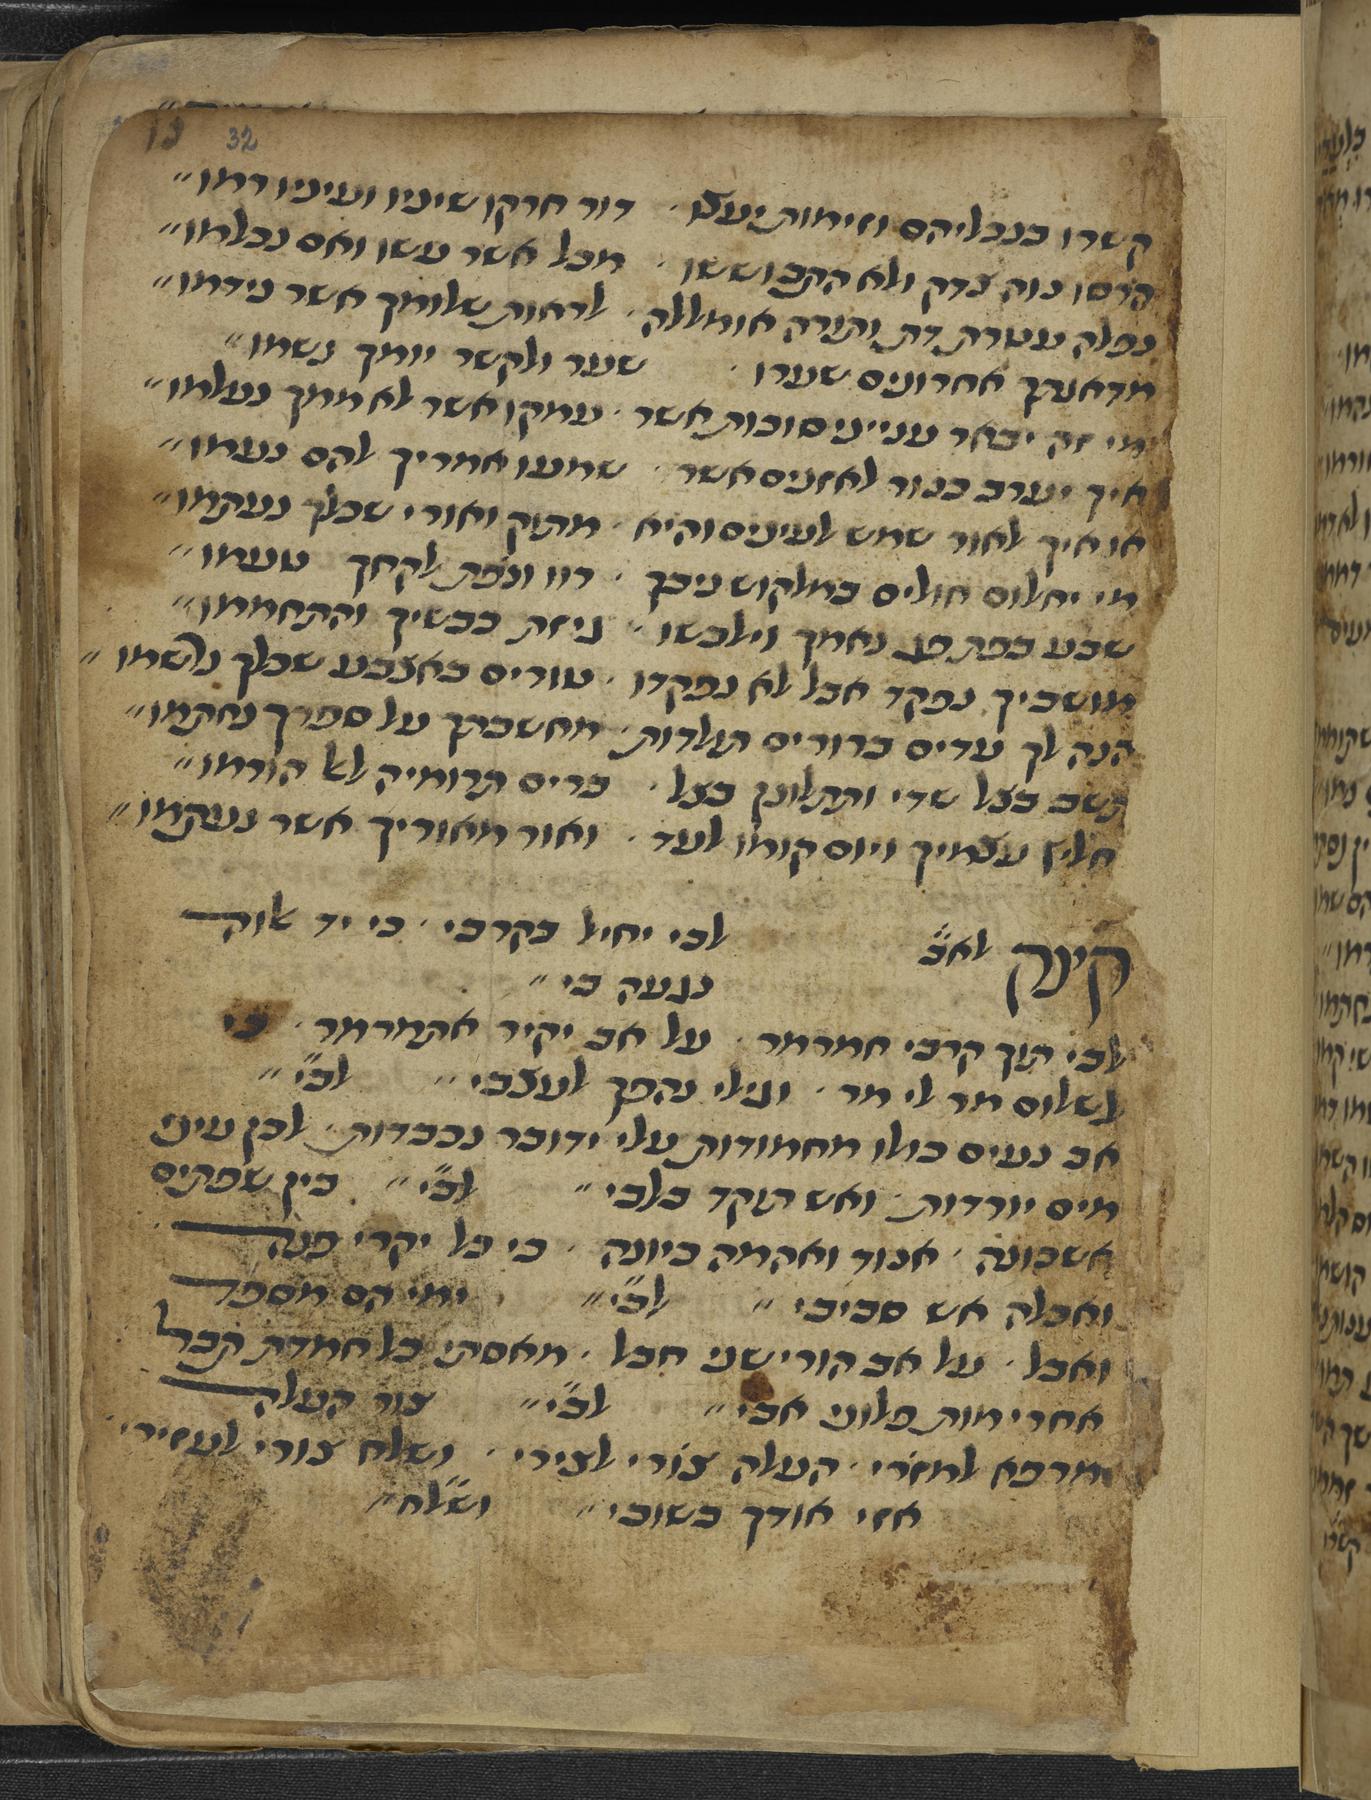 32
קשרו בנבליהם וזימות יעצו · דור חרקו שיניו ועיניו רמו״
הרסו נוה צדק ולא התבוששו · מכל אשר עשו ואם נכלמו״
נפלה עטרת דת ותורה אומללה · לראות שלומך אשר נידמו״
מדאגתך אחרונים שערו · שער ולקשר יומך נשמו״
מי זה יבאר עניינים סוכות אשר · עמקו אשר לא ממך נעלמו״
איך יערב כנור לאזנים אשר · שמעו אמריך להם נעמו״
או איך לאור שמש לעינים והיא · מתוק ואורי שכלך נעתמו״
מי יחלום חולים במלקוש ניבך · רוו ונפת לקחך טעמו״
שבע בפת פג נאמך וילבשו · גיזת כבשיך והתחממו״
מושביך נפקד אבל לא נפקדו · טורים באצבע שכלך נרשמו״
הנה לך עדים ברורים תולדות · מחשבתך על ספרך נחתמו״
תשב בצל שדי ותתלונן בצל · כרים תרומיה ללא הורמו״
חליץ עצמיך ויום קומו לעד · ואור מאוריך אשר נעתמו״
קינה לאב״ לבי יחיל בקרבי · כי יד אוה
נגעה בי״
לבי תוך קרבי חמרמר · על אב יקיר אתמרמר · כי
לשלום מר לי מר · וגילי נהפך לעצבי״ לבי״
אב נעים כולו מחמודות עלי ידובר נכבדות · לכן עיני
מים יורדות · ואש תוקד בלבי״ לבי״ בין שפתים
אשכונה · אנוד ואהמה כיונה · כי כל יקרי פנה
ואכלה אש סביבי״ לבי״ ימי הם מספד
ואבל · על אב הורישני חבל · מאסתי כל חמדת תבל
אחרי מות פלוני אבי״ לבי״ צור העלה
מרפא למזורי · העלה צורי לצירי · ושלח צורי לעזירי
אזי אודך בשובי״ ושלח״